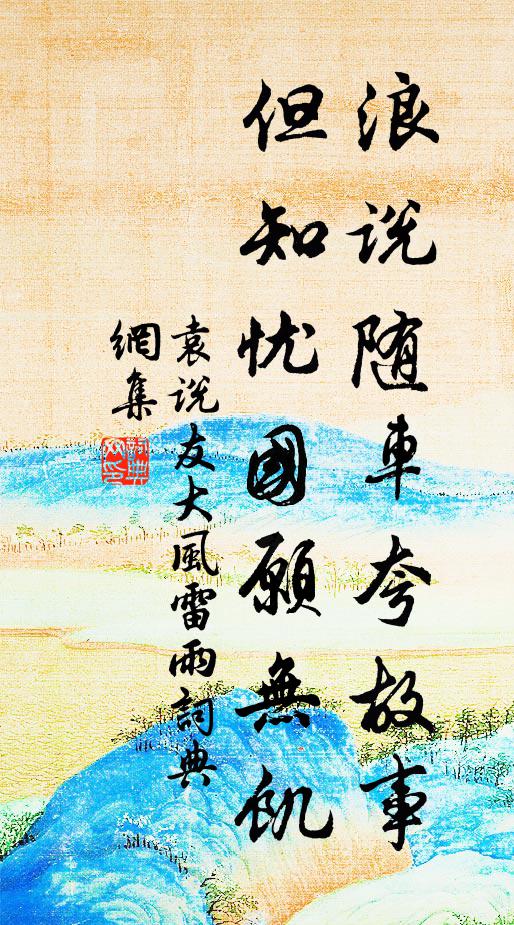 浪说随車夸故事
但知忧國願無飢
袁说友大風雷雨詞典
網集